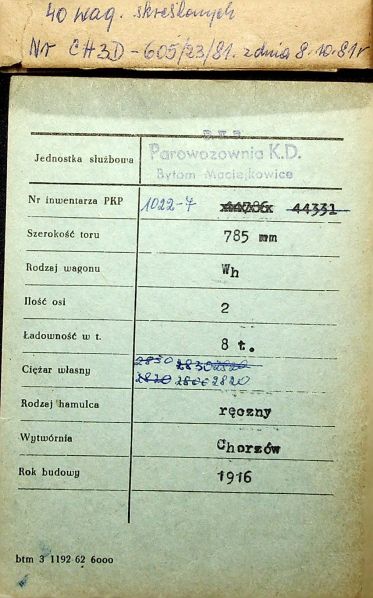 40 wag. skreślonych
Nr CH3D - 605/23/81. z dnia 8.10.81r
Jednostka służbowa
Parowozownia K.D.
Bytom Maciejkowice
Nr inwentarza PKP 1022-7 44331
Szerokość toru 785 mm
Rodzaj wagonu Wh
Ilość osi 2
Ładowność w t. 8 t.
Ciężar własny 2830 2830 2820
2820 2800 2820
Rodzaj hamulca ręczny
Wytwórnia Chorzów
Rok budowy 1916
btm 3 1192 62 6000